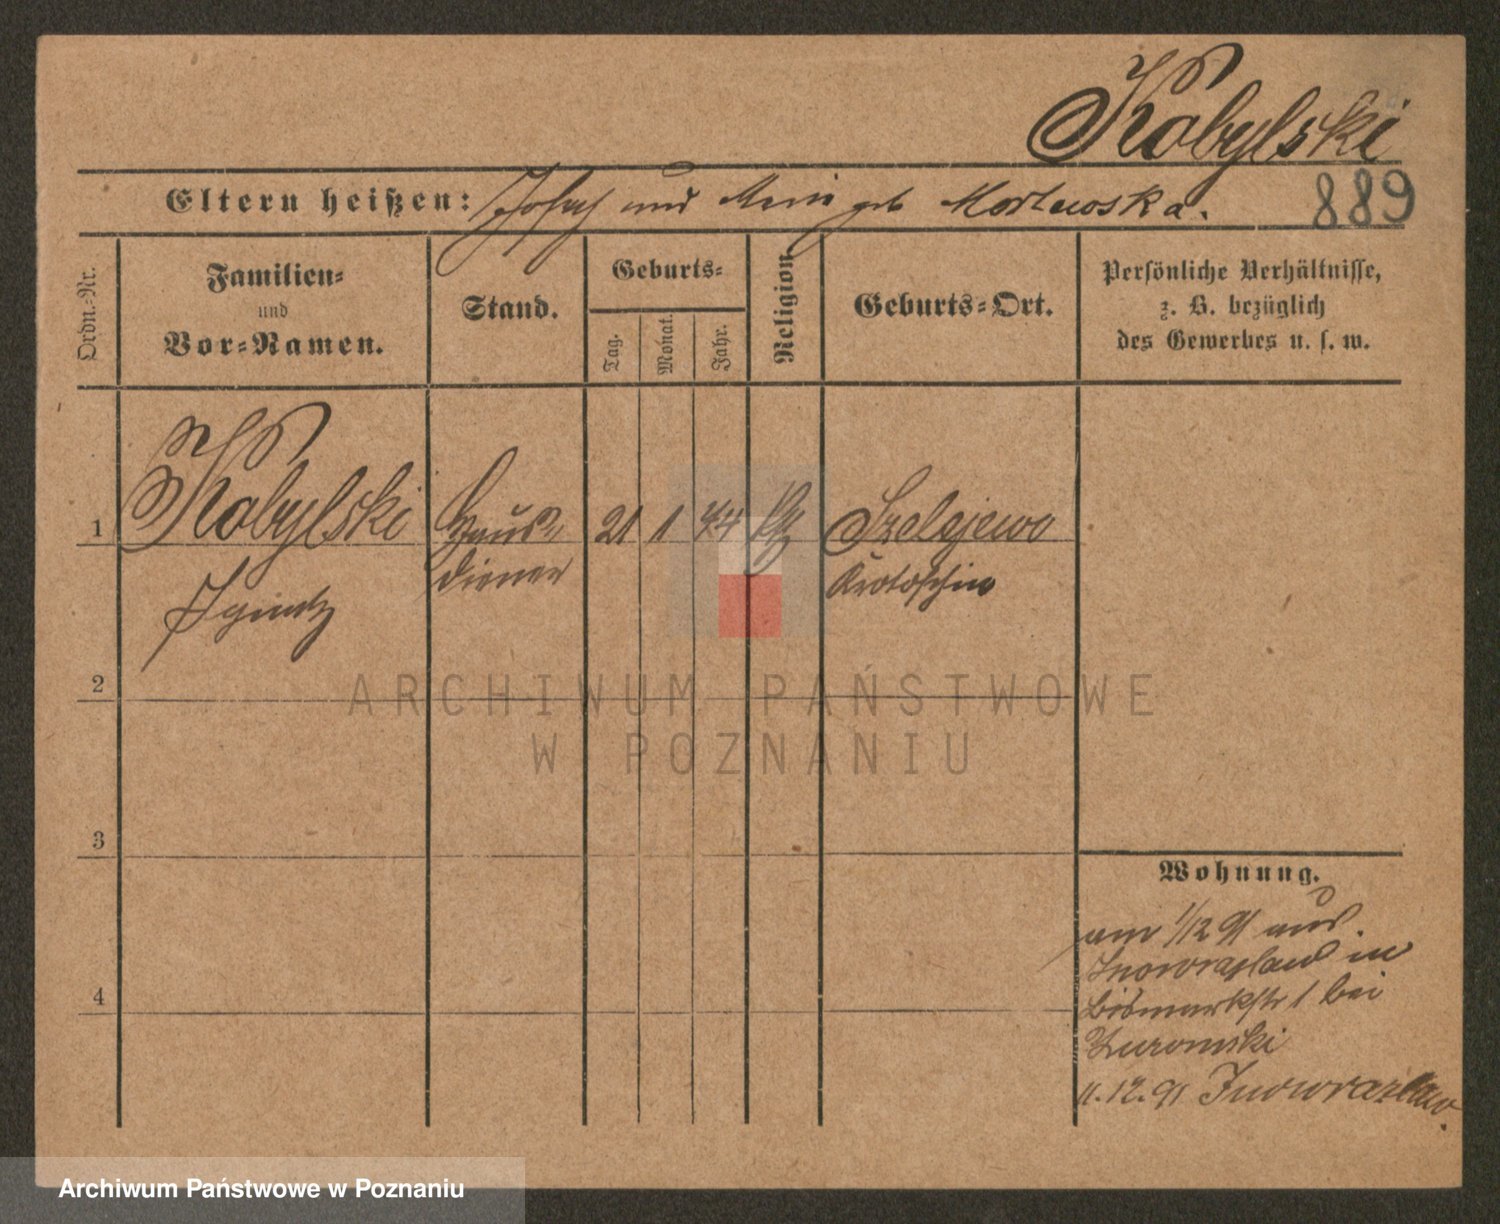 Kobylski
889
Eltern heißen: Joseph und Marie geb Kortewska.
Ordn.-Nr.
Familien-
und
Vor-Namen.
Stand.
Geburts-
Tag.
Monat.
Jahr.
Religion
Geburts-Ort.
Persönliche Verhältnisse,
z. B. bezüglich
des Gewerbes u. s. w.
1
Kobylski
Ignatz
Haus-
diener
21
1
44
Szelejewo
Krotoschin
2
3
4
Wohnung.
am 1/12 91 aus
Inowrazlaw in
Bismarkstr 1 bei
Zuromski
11.12.91 Inowrazlaw.
ARCHIWUM PAŃSTWOWE
W POZNANIU
Archiwum Państwowe w Poznaniu